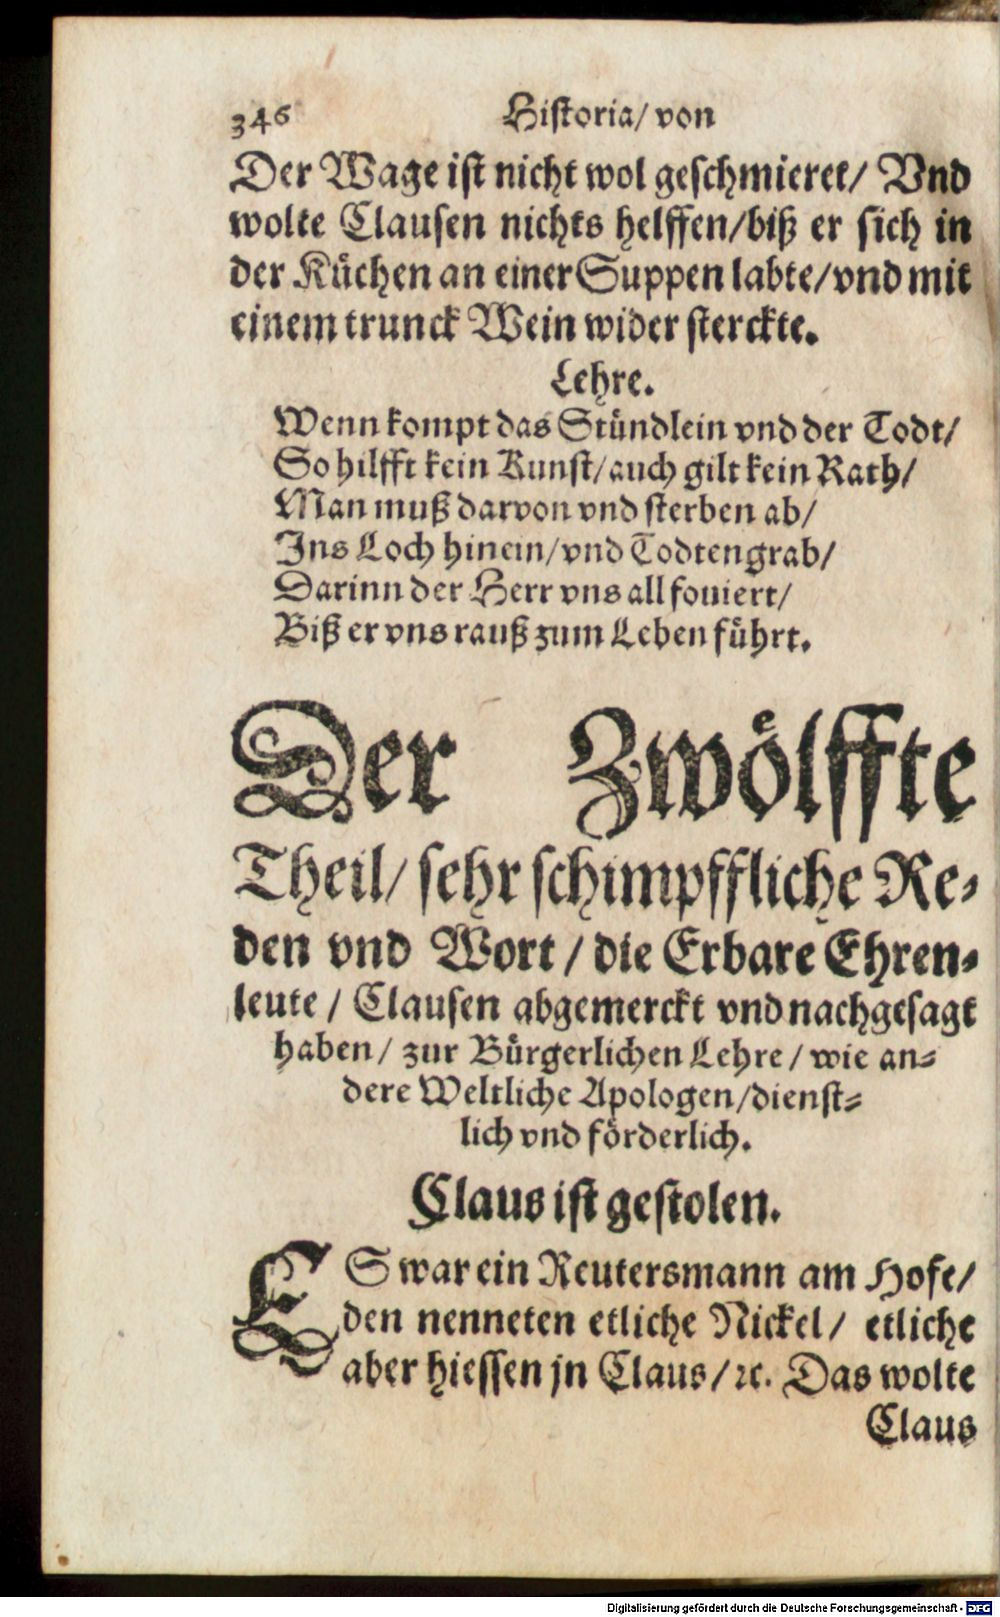 346 Historia/ von
Der Wage ist nicht wol geschmieret/ Vnd
wolte Clausen nichts helffen/biß er sich in
der Küchen an einer Suppen labte/vnd mit
einem trunck Wein wider sterckte.
Lehre.
Wenn kompt das Stündlein vnd der Todt/
So hilfft kein Kunst/auch gilt kein Rath/
Man muß darvon vnd sterben ab/
Ins Loch hinein/vnd Todtengrab/
Darinn der Herr vns all fouiert/
Biß er vns rauß zum Leben führt.
Der Zwölffte
Theil/ sehr schimpffliche Re-
den vnd Wort / die Erbare Ehren-
leute / Clausen abgemerckt vnd nachgesagt
haben/ zur Bürgerlichen Lehre / wie an-
dere Weltliche Apologen/dienst-
lich vnd förderlich.
Claus ist gestolen.
ES war ein Reutersmann am Hofe/
den nenneten etliche Nickel/ etliche
aber hiessen jn Claus/ ꝛc. Das wolte
Claus
Digitalisierung gefördert durch die Deutsche Forschungsgemeinschaft - DFG